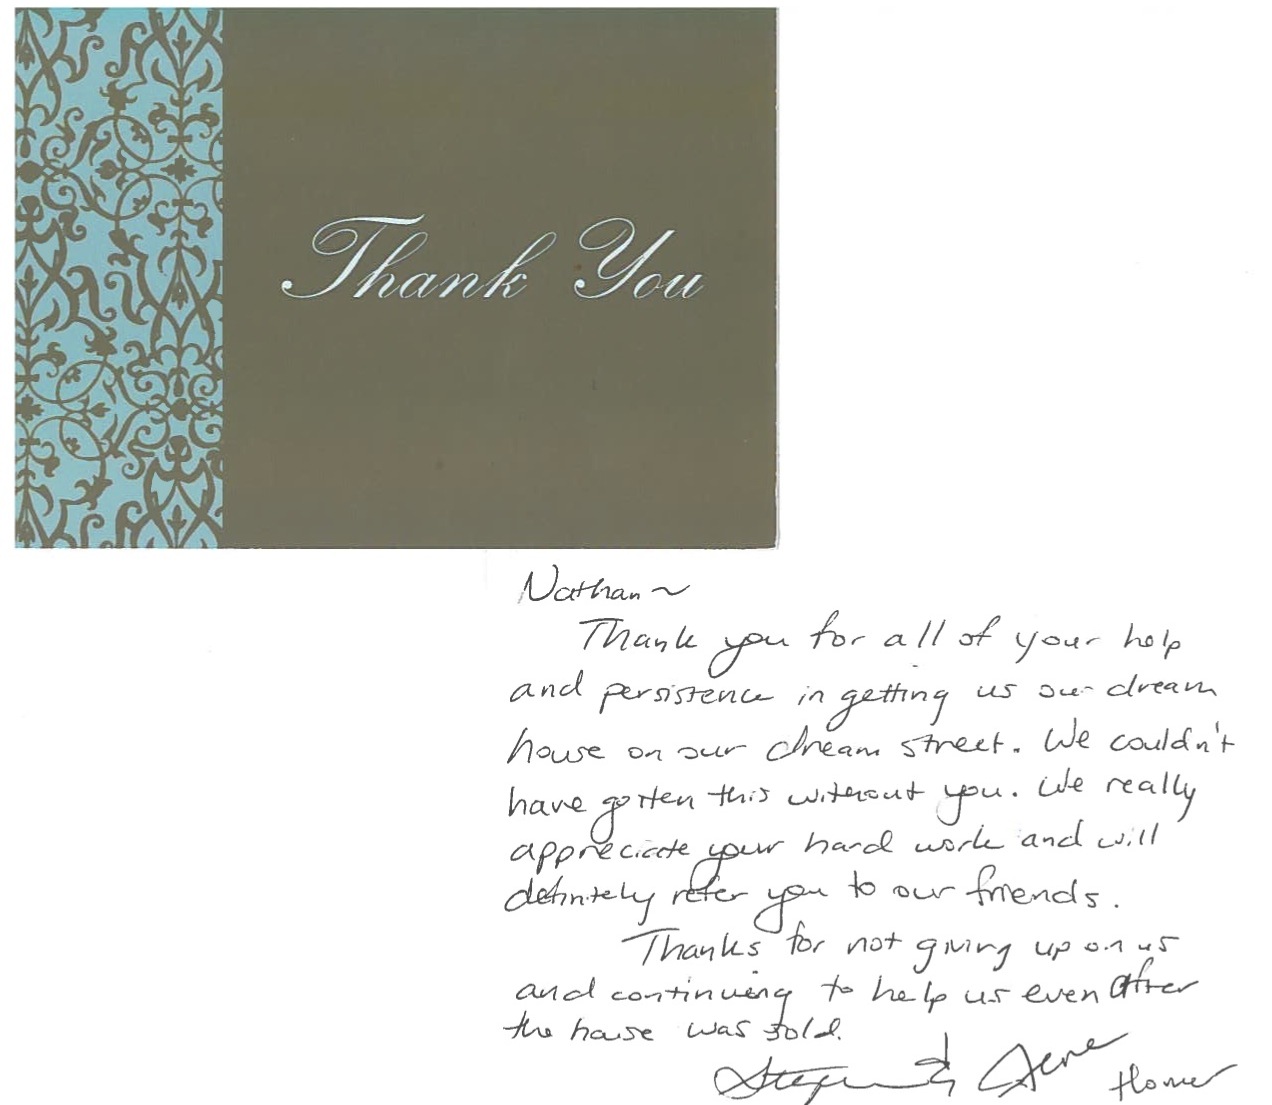 Thank You
Nathan ~
Thank you for all of your help
and persistence in getting us our dream
house on our dream street. We couldn't
have gotten this without you. We really
appreciate your hard work and will
definitely refer you to our friends.
Thanks for not giving up on us
and continuing to help us even after
the house was sold.
Gene